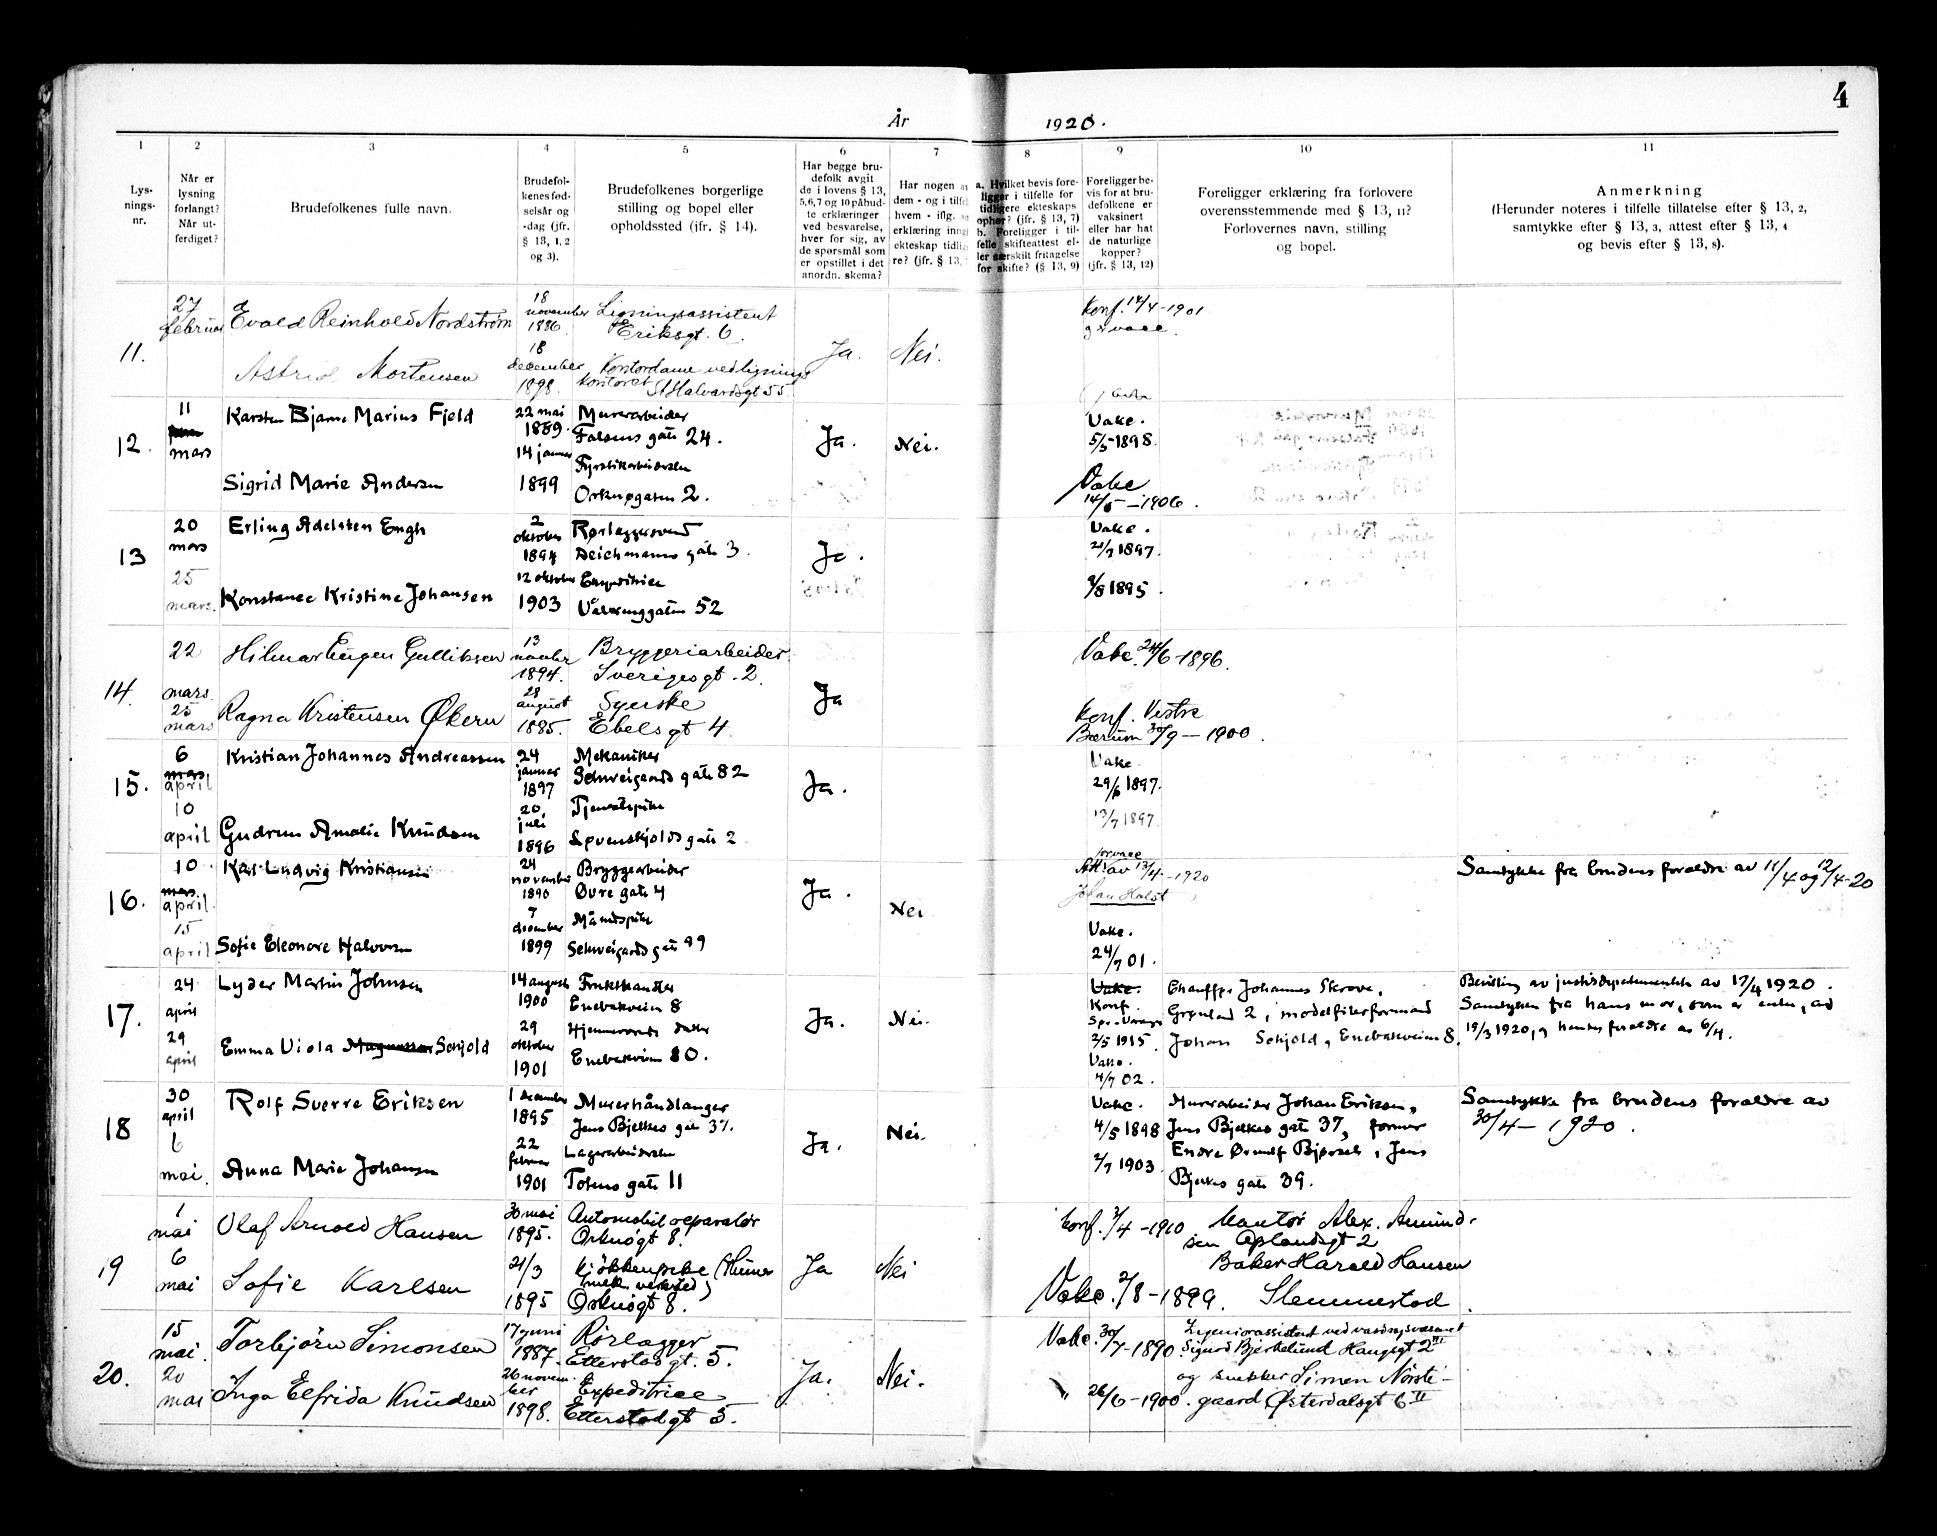 4
År 1920.
1 2 3 4 5 6 7 8 9 10 11
Lys-
nings-
nr.
Når er
lysning
forlangt?
Når ut-
ferdiget?
Brudefolkenes fulle navn.
Brudefol-
kenes fød-
selsår og
-dag (jfr.
§ 13, 1, 2
og 3).
Brudefolkenes borgerlige
stilling og bopel eller
opholdssted (jfr. § 14).
Har begge bru-
defolk avgit
de i lovens § 13,
5,6,7 og 10 påbud-
te erklæringer
ved besvarelse,
hver for sig, av
de spørsmål som
er opstillet i det
anordn. skema?
Har nogen a
dem - og i tilfel
hvem - iflg.
erklæring inng
ekteskap tidlig
re? (jfr. § 13,
a. Hvilket bevis fore-
ligger i tilfelle for
tidligere ekteskaps
ophør? (jfr. § 13, 7)
b. Foreligger i til-
felle skifteattest el-
ler særskilt fritagelse
for skifte? (§ 13, 9)
Foreligger be-
vis for at bru-
defolkene er
vaksinert
eller har hat
de naturlige
kopper?
(jfr. § 13, 12)
Foreligger erklæring fra forlovere
overensstemmende med § 13, 11?
Forlovernes navn, stilling
og bopel.
Anmerkning
(Herunder noteres i tilfelle tillatelse efter § 13, 2,
samtykke efter § 13, 3, attest efter § 13, 4
og bevis efter § 13, 8).
11.
27
februar
Evald Reinhold Nordström
18
november
1886
Ligningsassistent
Eriksgt. 6.
Ja. Nei.
Konf. 14/4-1901
Astrid Mortensen
18
december
1898.
Kontordame ved lignings
kontoret St Halvardsgt 55
12.
11
mars
Karsten Bjarne Marius Fjeld
22 mai
1889.
Murerarbeider
Falsens gate 24.
Ja. Nei.
Vakc.
5/5-1898.
Sigrid Marie Andersen
14 januar
1899
Fyrstikarbeiderske
Orknøgaten 2.
Vakc
14/5-1906.
13
20
mars
25
mars.
Erling Adelsten Engh
2
oktober
1894
Rørlæggersvend
Deichmanns gate 3.
Ja.
Vakc.
21/7 1897.
Konstance Kristine Johansen
12 oktober
1903
Expeditrice
Vålerenggaten 52
1/8 1895.
14.
22
mars.
25
mars
Hilmar Eugen Gulliksen
13
november
1894.
Bryggeriarbeider
Sverigesgt. 2.
Ja
Vakc. 24/6-1896.
Ragna Kristensen Økern
28
august
1885.
Syerske
Ebelsgt 4.
Konf. Vestre
Bærum 30/9-1900.
15.
6
mars
april
10
april
Kristian Johannes Andreassen
24
januar
1897
Mekaniker
Schweigaards gate 82
Ja.
Vakc.
29/6 1897.
Gudrun Amalie Knudsen
20
juli
1896
Tjenestepike
Svenskjolds gate 2
13/7 1897.
16.
10
mars
april.
15
april
Karl Ludvig Kristiansen
24
november
1890
Bryggearbeider
Øvre gate 4
Ja. Nei
Att. av 13/4-1920
Johan Holst
Samtykke fra brudens forældre av 11/4 og 12/4-20
Sofie Eleonore Halvorsen
7
december
1899
Måndspike
Schweigaards gate 99
Vakc.
24/7 01.
17.
24
april
29
april
Lyder Martin Johnsen
14 august
1900
Frukthandler
Enebakveien 8
Ja. Nei.
Vakc.
Konf.
2/5 1915.
Chauffør Johannes Skrove,
Grønland 2, modelfilerformand
Johan Schjold, Enebakveien 8.
Bevilling av justisdepartementet av 17/4 1920.
Samtykke fra hans mor, som er enke, av
19/3 1920, og hennes forældre av 6/4.
Emma Viola Magnussen Schjold
29
oktober
1901
Hjemmeværende datter
Enebakveien 80.
Vakc.
4/7 02.
18
30
april
6
mai.
Rolf Sverre Eriksen
1 december
1895
Murerhåndlanger
Jens Bjelkes gate 37.
Ja. Nei.
Vakc.
4/5 1898
Murerarbeider Johan Eriksen,
Jens Bjelkes gate 37, former
Endre Bjerseth, Jens
Bjelkes gate 39.
Samtykke fra brudens forældre av
30/4-1920.
Anna Marie Johansen
22
februar
1901
Lagerarbeiderske
Totens gate 11
2/7 1903.
19
1
mai
6
mai
Olaf Arnold Hansen
30 mai
1895.
Automobilreparatør
Orknøgt 8.
Ja Nei
Konf. 3/4-1910
Kantor Alex. Amund-
sen Oplandsgt 2
Baker Harald Hansen
Slemmestad.
Sofie Karlsen
21/3
1895
kjøkkenpike (Thunes
mek. verksted)
Orknøgt 8.
Vakc. 2/8-1899.
20.
15
mai.
20
mai
Torbjörn Simonsen
17 juni
1887.
Rørlægger
Etterstadgt. 5.
Ja. Nei.
Vakc. 30/7-1890.
Ingeniørassistent ved vandv­æsenet
Sigurd Bjerkelund Haugsgt 2 III
og snekker Simen Nörsti-
gaard Østerdalsgt 6 II
Inga Elfrida Knudsen
26 novem-
ber
1898.
Expeditrice
Etterstadgt 5.
" 26/6-1900.